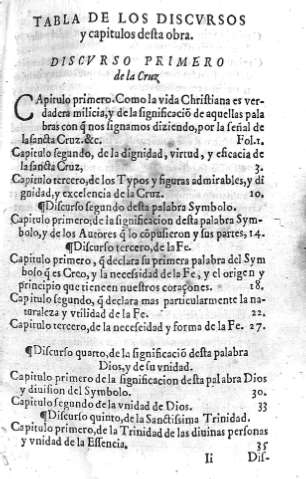 TABLA DE LOS DISCVRSOS
y capitulos desta obra.
DISCVRSO PRIMERO
de la Cruz
CApitulo primero. Como la vida Christiana es ver-
dadera milicia, y de la significació de aquellas pala
bras con q̃ nos signamos diziendo, por la señal de
la sancta Cruz. &c. Fol. 1.
Capitulo segundo, de la dignidad, virtud, y eficacia de
la sancta Cruz, 3.
Capitulo tercero, de los Typos y figuras admirables, y di
gnidad, y excelencia de la Cruz. 10.
¶Discurso segundo desta palabra Symbolo.
Capitulo primero, de la significacion desta palabra Sym-
bolo, y de los Autores q̃ lo cópusieron y sus partes, 14.
¶Discurso tercero, de la Fe.
Capitulo primero, q̃ declara su primera palabra del Sym
bolo q̃ es Creo, y la necessidad de la Fe, y el origen y
principio que tiene en nuestros coraçones. 18.
Capitulo segundo, q̃ declara mas particularmente la na-
turaleza y vtilidad de la Fe. 22.
Capitulo tercero, de la necessidad y forma de la Fe. 27.
¶Discurso quarto, de la significació desta palabra
Dios, y de su vnidad.
Capitulo primero de la significacion desta palabra Dios
y diuision del Symbolo. 30.
Capitulo segundo de la vnidad de Dios. 33
¶Discurso quinto, de la Sanctissima Trinidad.
Capitulo primero, de la Trinidad de las diuinas personas
y vnidad de la Essencia. 35
Ii Dis-